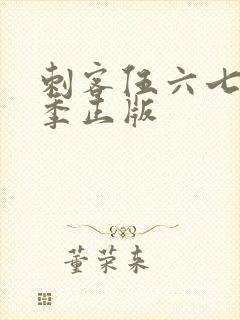 刺客伍六七
季正版
董荣来